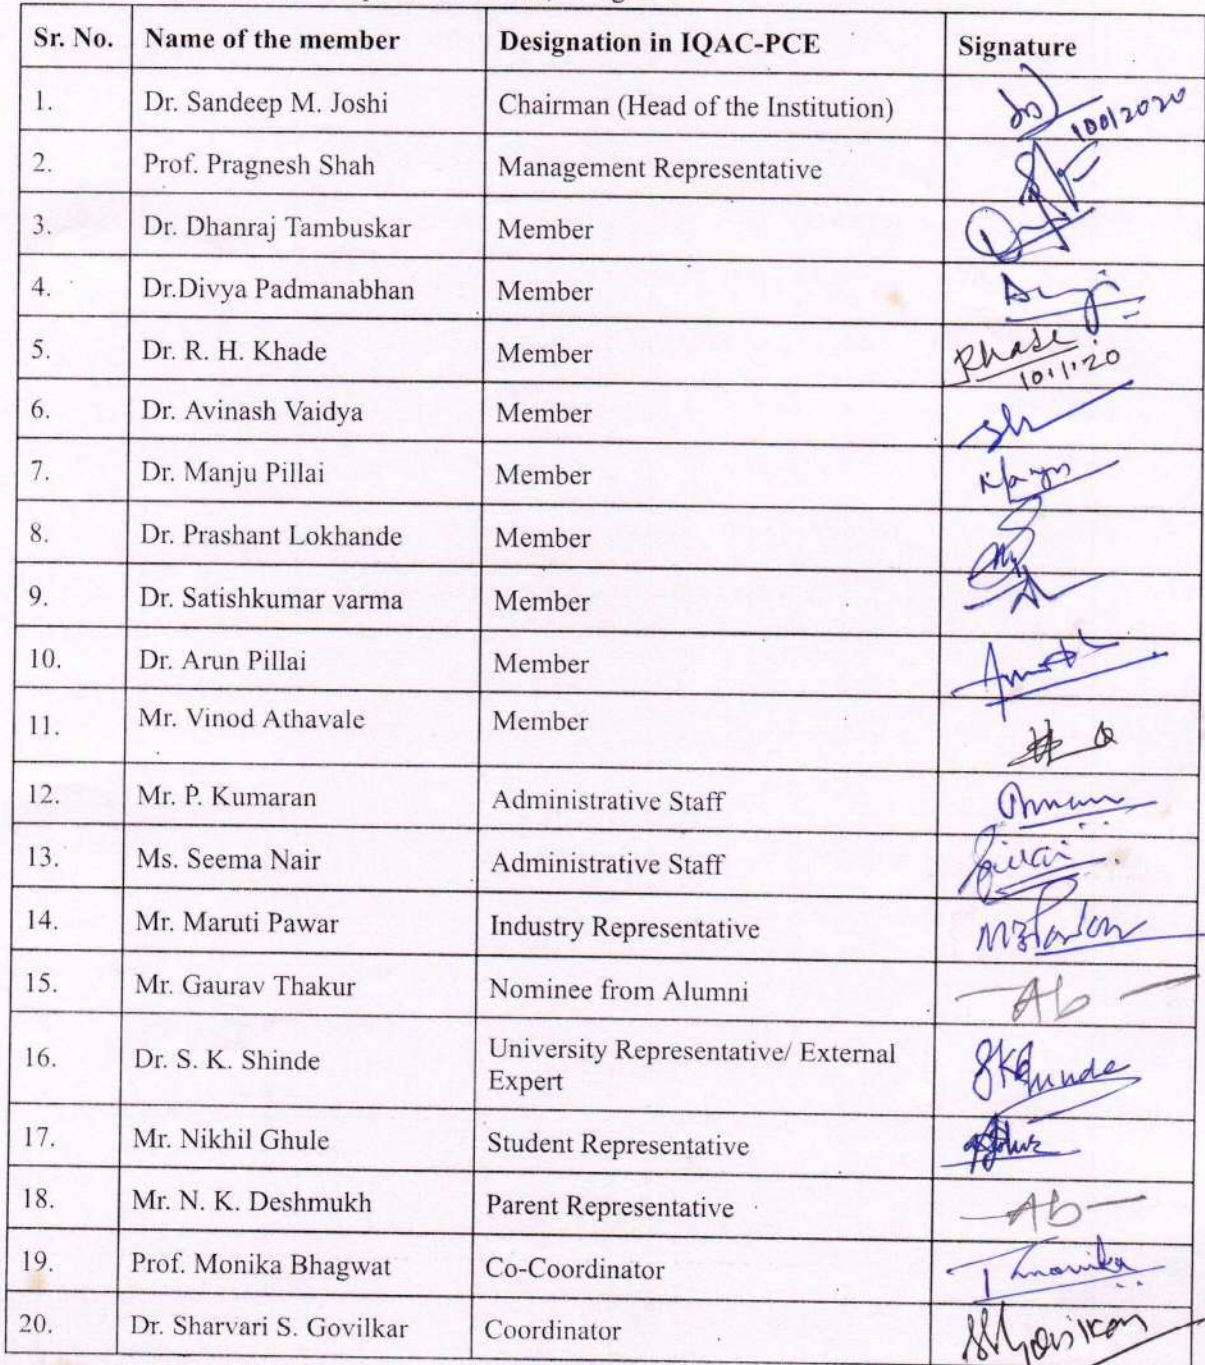 Sr. No. Name of the member Designation in IQAC-PCE Signature
1. Dr. Sandeep M. Joshi Chairman (Head of the Institution)
2. Prof. Pragnesh Shah Management Representative
3. Dr. Dhanraj Tambuskar Member
4. Dr.Divya Padmanabhan Member
5. Dr. R. H. Khade Member Rhade
10.1.20
6. Dr. Avinash Vaidya Member
7. Dr. Manju Pillai Member
8. Dr. Prashant Lokhande Member
9. Dr. Satishkumar varma Member
10. Dr. Arun Pillai Member
11. Mr. Vinod Athavale Member
12. Mr. P. Kumaran Administrative Staff
13. Ms. Seema Nair Administrative Staff
14. Mr. Maruti Pawar Industry Representative
15. Mr. Gaurav Thakur Nominee from Alumni —Ab—
16. Dr. S. K. Shinde University Representative/ External
Expert
17. Mr. Nikhil Ghule Student Representative
18. Mr. N. K. Deshmukh Parent Representative —Ab—
19. Prof. Monika Bhagwat Co-Coordinator
20. Dr. Sharvari S. Govilkar Coordinator